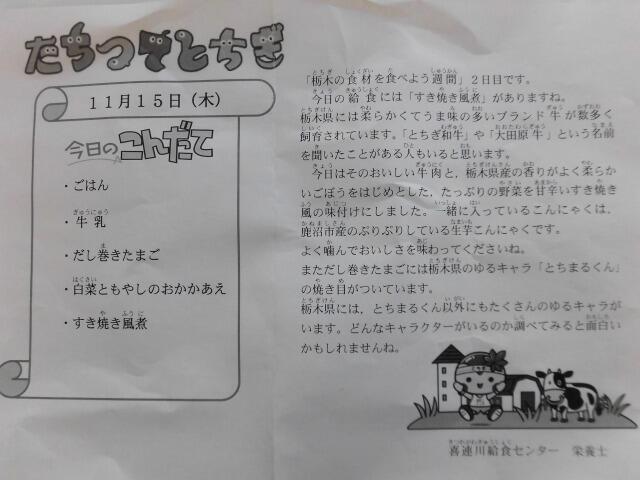 たちつてとちぎ
11月15日(木)
今日のこんだて
・ごはん
・牛乳
・だし巻きたまご
・白菜ともやしのおかかあえ
・すき焼き風煮
「栃木の食材を食べよう週間」2日目です。
今日の給食には「すき焼き風煮」がありますね。
栃木県には柔らかくてうま味の多いブランド牛が数多く
飼育されています。「とちぎ和牛」や「大田原牛」という名前
を聞いたことがある人もいると思います。
今日はそのおいしい牛肉と，栃木県産の香りがよく柔らか
いごぼうをはじめとした，たっぷりの野菜を甘辛いすき焼き
風の味付けにしました。一緒に入っているこんにゃくは，
鹿沼市産のぷりぷりしている生芋こんにゃくです。
よく噛んでおいしさを味わってくださいね。
まただし巻きたまごには栃木県のゆるキャラ「とちまるくん」
の焼き目がついています。
栃木県には，とちまるくん以外にもたくさんのゆるキャラが
います。どんなキャラクターがいるのか調べてみると面白い
かもしれませんね。
喜連川給食センター　栄養士